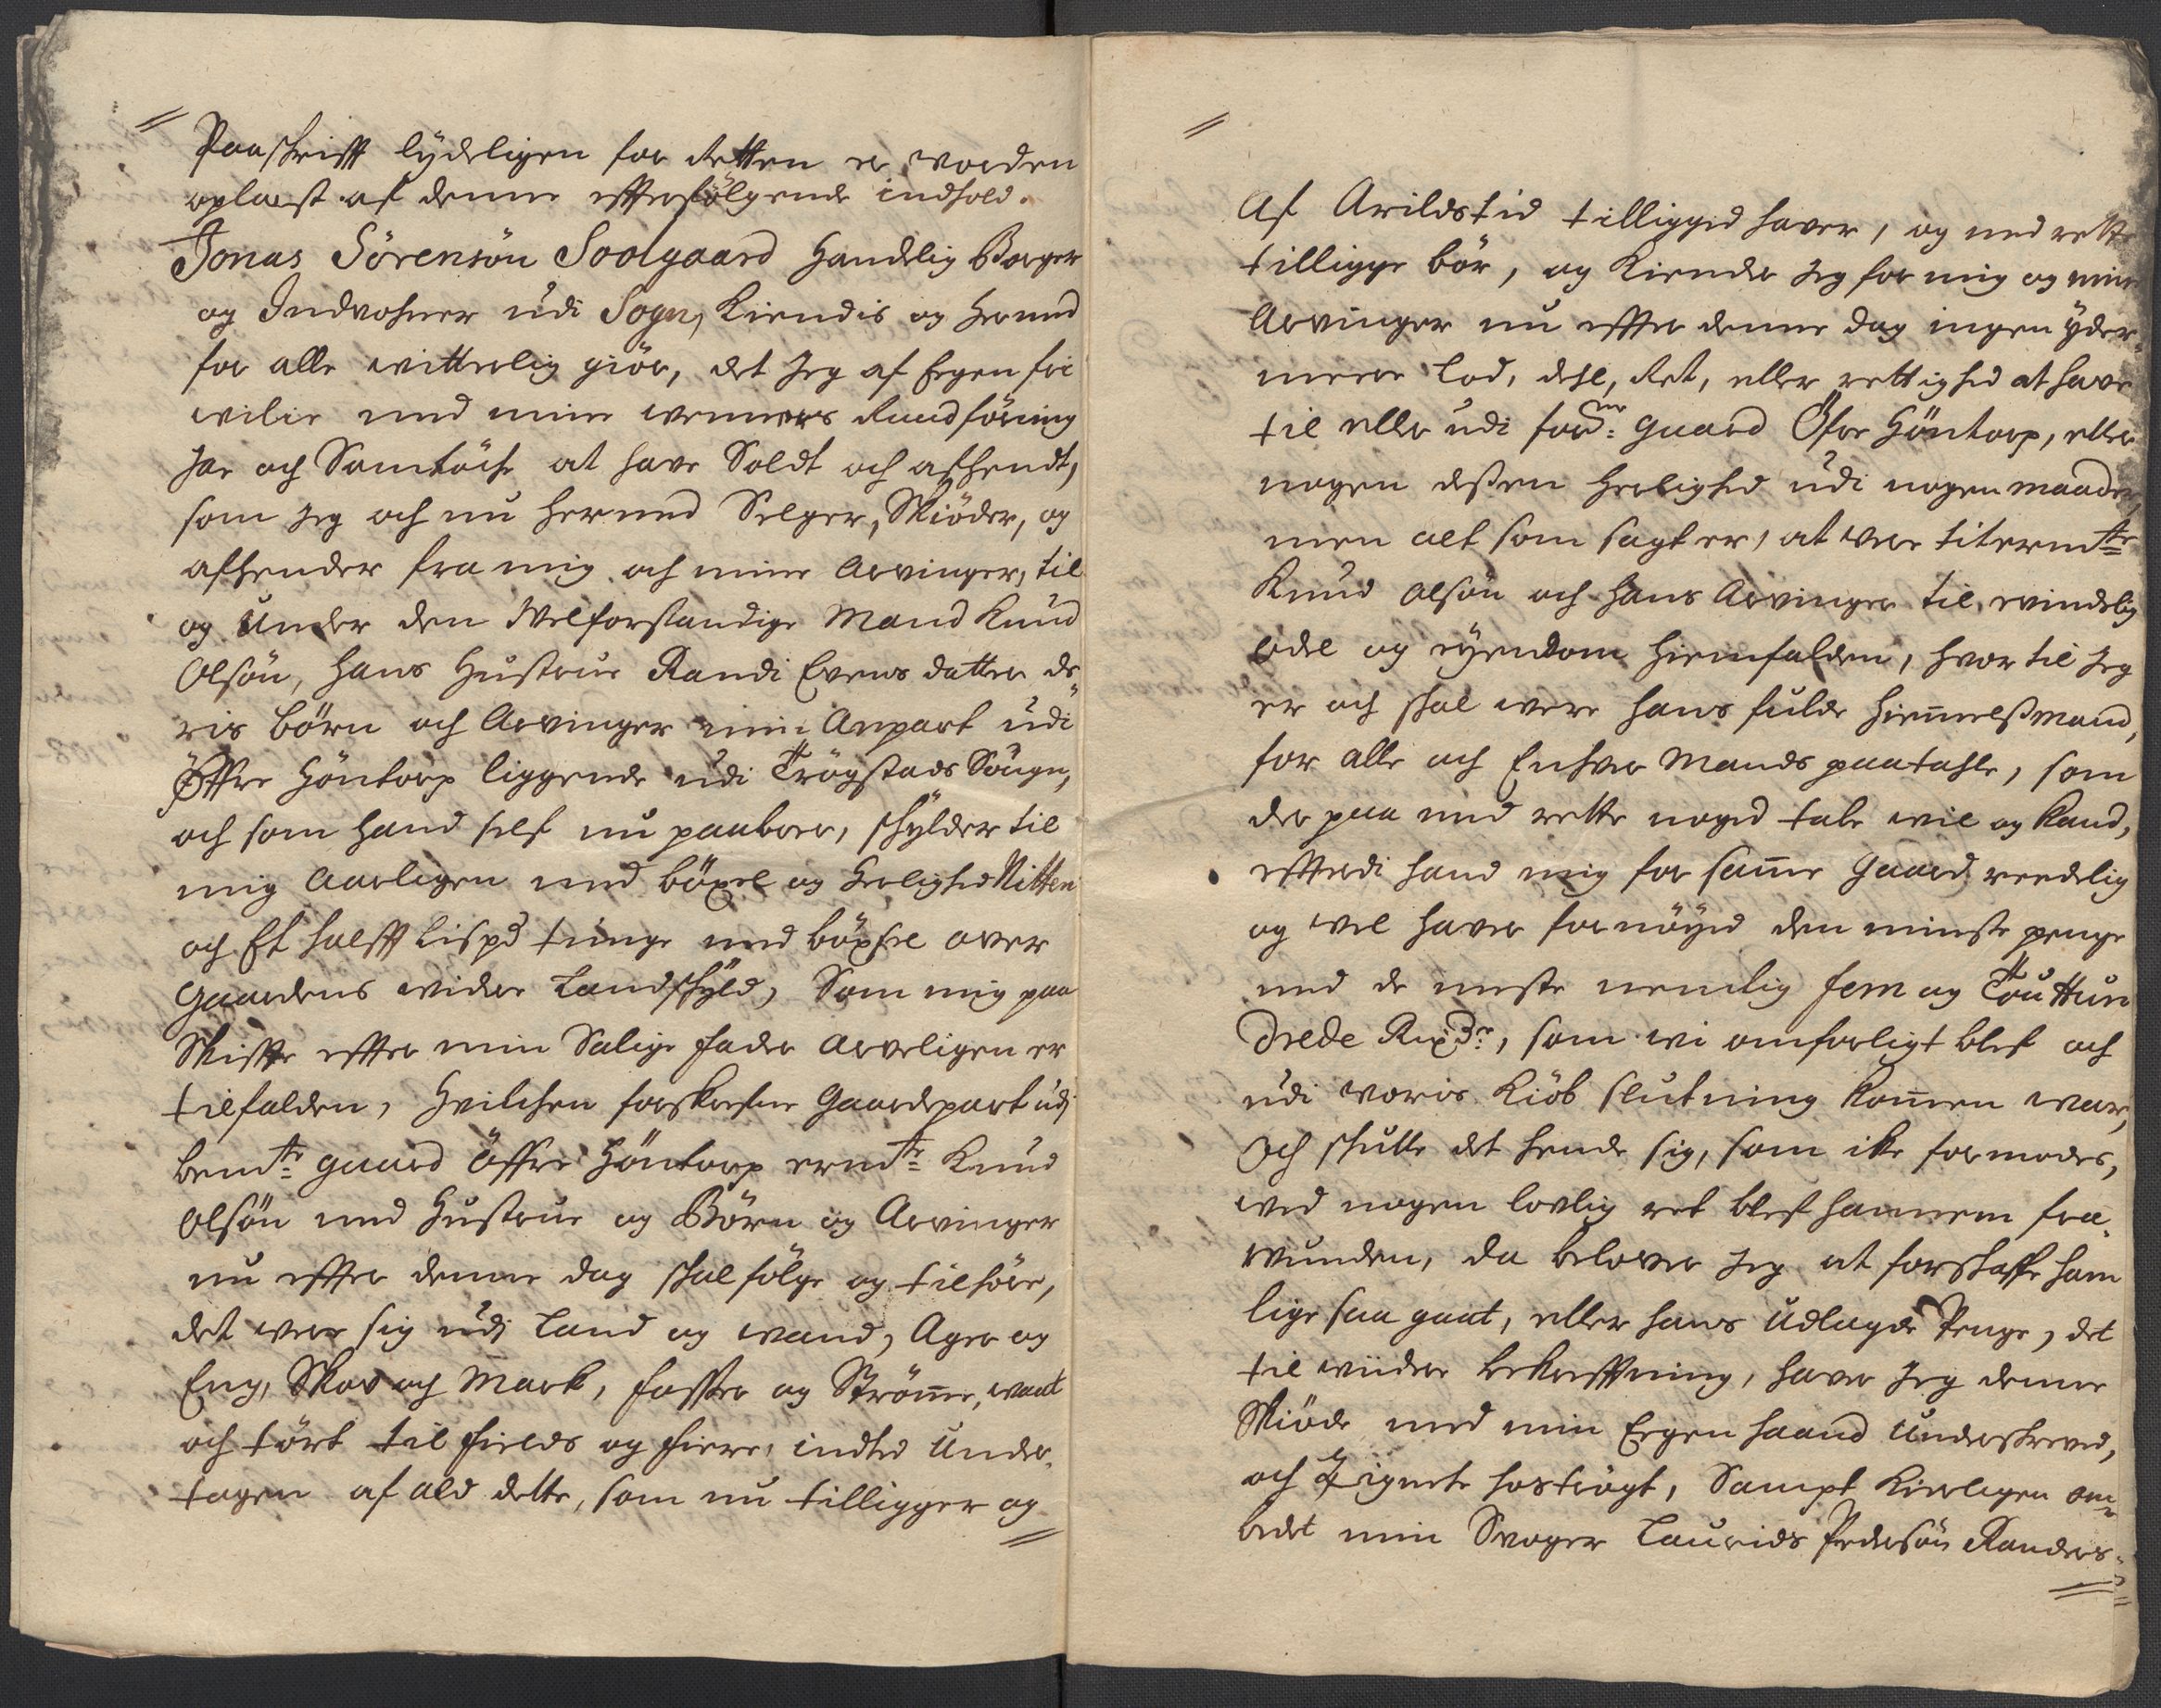 Paaskrifft lÿdeligen for Retten er worden
oplæst af denne effterfölgende indhold.
Jonas Sörensön Soolgaard Handelig Borger
og Indvohner udi Sogn, Kiendis og hermed
for alle witterlig giör, det Jeg af Egen fri
wilie med mine wenners Raadföring
Jae och Samtöche at have Soldt och afhendt,
som Jeg och nu hermed Selger, Skiöder, og
afhender fra mig och mine Arvinger, til
og Under den Welforstandige Mand Knud
Olsön, hans Hustrue Randi Evens datter de„
ris börn och Arvinger min Anpart udi
Öffre Höntorp liggende udi Trögstads Sougn,
och som hand self nu paaboer, skÿlder til
mig Aarligen med böxel og herlighed Nitten
och Et halfft Lispd tunge med böxsel over
Gaardens widere Landskÿld, Som mig paa
Skiffte effter min Salige fader Arveligen er
tilfalden, Hvilchen forskrefne Gaardepart udj
bemte gaard Öffre Höntorp ermte Knud
Olsön med Hustrue og Börn og Arvinger
nu effter denne dag skal fölge og tilhöre,
det were sig udj Land og wand, Ager og
Eng, Skov och Mark, fosser og Strömme, waat
och tört til fields og fiere, indted Under„
tagen af ald dette, som nu tilligger og
Af Arildstid tilligged haver, og med rette
tilligge bör, og Kiender Jeg for mig og mine
Arvinger nu effter denne dag ingen ÿder„
meere Lod, deel, Ret, eller rettighed at have
til eller udi forne: Gaard Öfre Höntorp, eller
nogen dessen herlighed udi nogen maader,
men alt som sagt er, at were titermte
Knud Olsön och Hans Arvinger til, evindelig
odel og eÿendom hiemfalden, hvor til Jeg
er och skal were hans fulde hiemmelssmand,
for alle och Enhver Mands paatahle, som
der paa med rette noged tale wil og kand,
efftterdi hand mig for samme Gaard reedelig
og wel haver fornöÿed den minste penge
med de meste nemlig fem og Tou Hun
drede Rixdr:, som wi omforligt blef och
udi woris Kiöb slutning kommen ware,
Och skulle det hende sig, som ike formodes,
wed nogen lovlig ret blef hannem fra„
wunden, da belover Jeg at forskaffe ham
lige saa gaat, eller hans Udlagde Penge, det
til wiidere bekrefftning, haver Jeg denne
Skiöde med min Egen haand Underskreved,
och Zignete hoströgt, Sampt kierligen om„
bedet min Svoger Laurids Pedersön Randers„